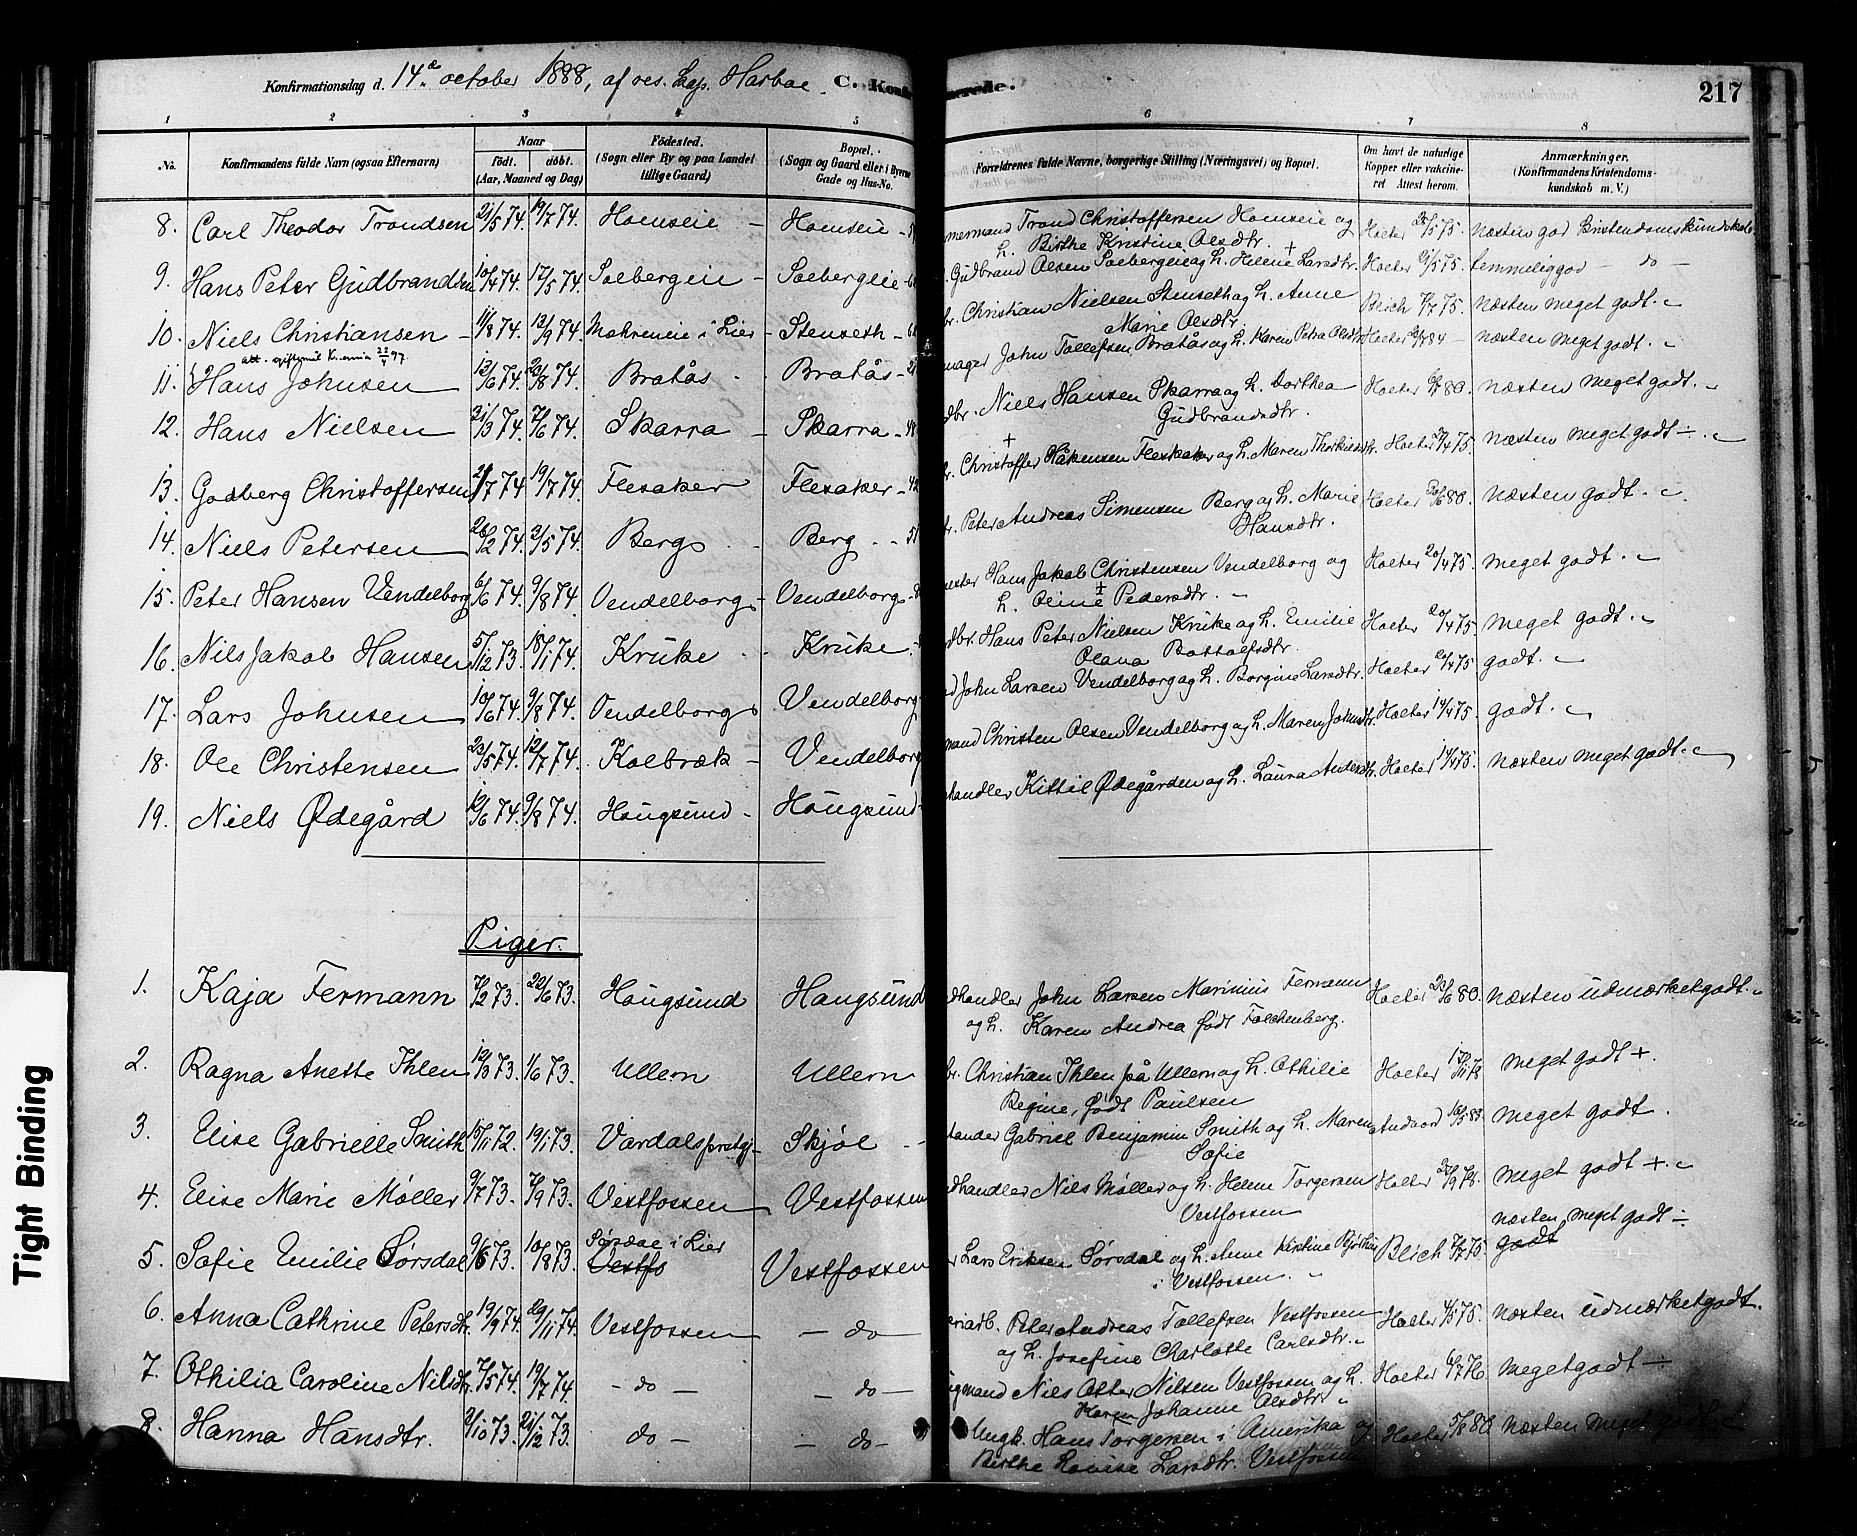 Konfirmationsdag d. 14de october 1888, af res. Kap. Harboe. C. Konfirmerede. 217
1 2 3 4 5 6 7 8
No. Konfirmandens fulde Navn (ogsaa Efternavn) Naar født. døbt. (Aar, Maaned og Dag) Fødested. (Sogn eller By og paa Landet tillige Gaard) Bopæl. (Sogn og Gaard eller i Byerne Gade og Hus-No. Forældrenes fulde Navne, borgerlige Stilling (Næringsvei) og Bopæl. Om havt de naturlige Kopper eller vaccineret. Attest herom. Anmærkninger. (Konfirmandens Kristendomskundskab m. V.)
8. Carl Theodor Trondsen 21/5 74. 19/7 74. Homseie Homseie Trond Christoffersen Homseie og h. Birthe Kristine Olsdtr. Holter næsten god Kristendomskundskab
9. Hans Peter Gudbrandsen 10/4 74. 17/5 74. Solbergeie Solbergeie Gudbrand Olsen Solbergeie og h. Helene Larsdtr. Holter temmelig god do
10. Niels Christiansen 11/8 74. 13/9 74. i Lier Stenseth Christian Nielsen Stenseth og h. Anne Marie Olsdtr. Blich næsten meget godt.
11. Hans Johnsen 74. 23/8 74. Bratås Bratås John Tollefsen Bratås og h. Karen Petra Olsdtr Holter næsten meget godt.
12. Hans Nielsen 21/3 74. 7/6 74. Skarra Skarra Niels Hansen Skarra og h. Dorthea Gudbrandsdtr. Holter næsten meget godt.
13. Godberg Christoffersen 74 19/7 74. Flesaker Flesaker Christoffer Håkensen Flesaker og h. Maren Holter næsten meget godt ÷.
14. Niels Petersen 26/2 74. 2/5 74. Berg Berg Peter Andreas Simensen Berg og h. Marie Hansdtr. Holter næsten godt.
15. Peter Hansen Vendelborg 6/6 74. 9/8 74. Vendelborg Vendelborg Hans Jakob Christensen Vendelborg og h. Oline Pedersdtr. Holter 20/4 75. meget godt.
16. Nils Jakob Hansen 5/12 73. 18/1 74. Kruke Kruke Hans Peter Nielsen Kruke og h. Emilie Olava Bottolfsdtr. Holter 20/4 75. meget godt.
17. Lars Johnsen 10/6 74. 9/8 74. Vendelborg Vendelborg John Larsen Vendelborg og h. Borgine Larsdtr. Holter godt.
18. Ole Christensen 23/5 74. 12/7 74. Kolbræk Vendelborg Christen Olsen Vendelborg og h. Maren Johnsdtr. Holter 14/4 75. godt.
19. Niels Ødegård 74. 9/8 74. Hougsund Hougsund handler Kittil Ødegården og h. Laura Andersdtr. Holter 14/4 75. næsten meget godt.
Piger.
1. Kaja Fermann 7/2 73. 22/6 73. Hougsund Hougsund handler John Larsen Marinius Fermann og h. Karen Andrea født Falchenberg. Holter næsten udmærket godt.
2. Ragna Anette Ihlen 73. 1/6 73. Ullern Ullern Christian Ihlen på Ullern og h. Othilie Regine, født Paulsen Holter meget godt +.
3. Elise Gabrielle Smith 15/11 72. 19/1 73. Skjøl Gabriel Benjamin Smith og h. Maren Sofie meget godt.
4. Elise Marie Møller 9/7 73. 7/9 73. Vestfossen Vestfossen handler Nils Møller og h. Helene Torgersen Vestfossen Holter meget godt +.
5. Sofie Emilie Sørsdal 9/6 73. 10/8 73. Sørsdal i Lier Vestfo Vestfossen Lars Eriksen Sørsdal og h. Anne Kristine i Vestfossen. Blich næsten meget godt ÷ godt
6. Anna Cathrine Petersdtr. 19/9 74. 29/11 74. Vestfossen do Peter Andreas Tollefsen Vestfossen og h. Josefine Charlotte Carlsdtr. Holter næsten udmærket godt.
7. Othilia Caroline Nilsdtr. 7/5 74. 19/7 74. do do Nils Otter Nilsen Vestfossen og h. Karen Johanne Olsdtr. Holter meget godt ÷
8. Hanna Hansdtr. 2/10 73. 21/12 73. do do Ungk. Hans Torgersen i Amerika og Birthe Lovise Larsdtr. Vestfossen Holter næsten meget
Tight Binding